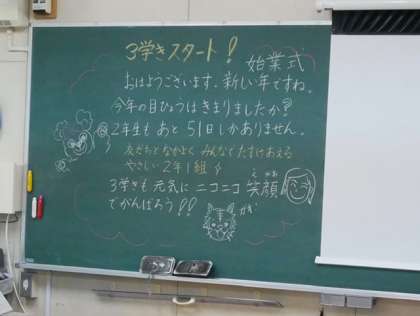 3学きスタート!
始業式
おはようございます。新しい年ですね。
今年の目ひょうはきまりましたか?
2年生もあと51日しかありません。
友だちとなかよくみんなでたすけあえる
やさしい2年1組
3学きも元気にニコニコ笑顔
えがお
でがんばろう!!